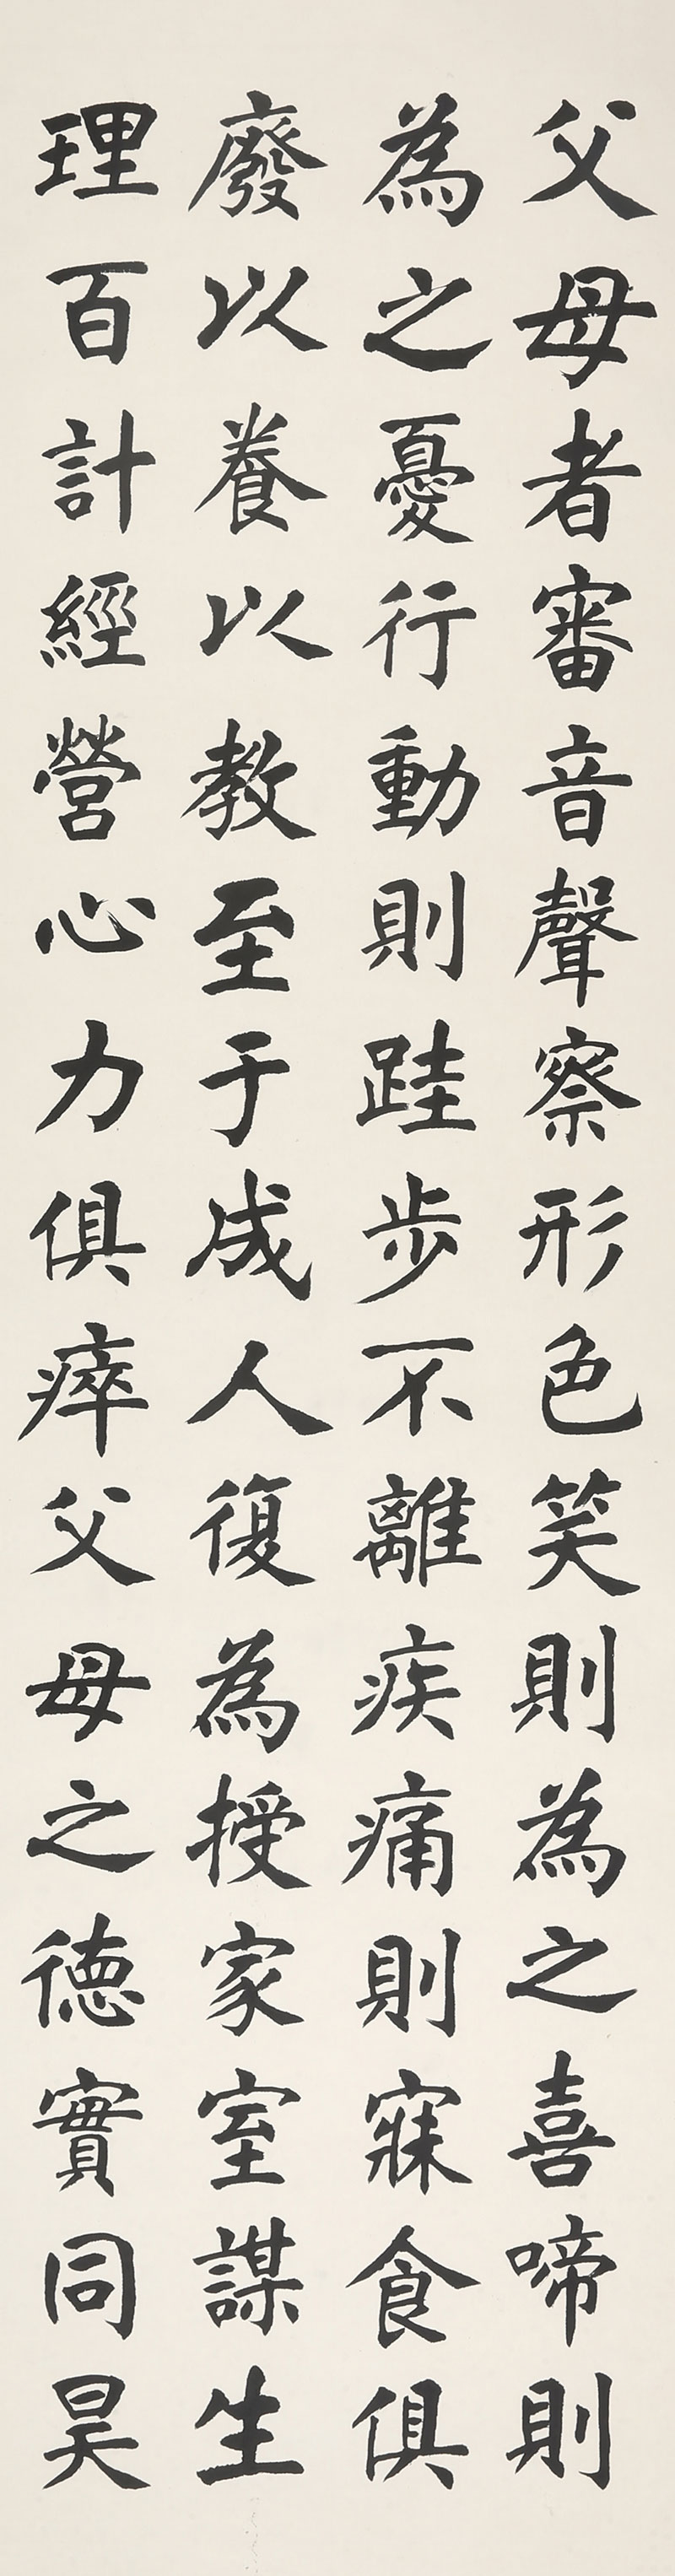 父母者審音聲察形色笑則為之喜啼則
為之憂行動則跬步不離疾痛則寐食俱
廢以養以教至于成人復為授家室謀生
理百計經營心力俱瘁父母之德實同昊